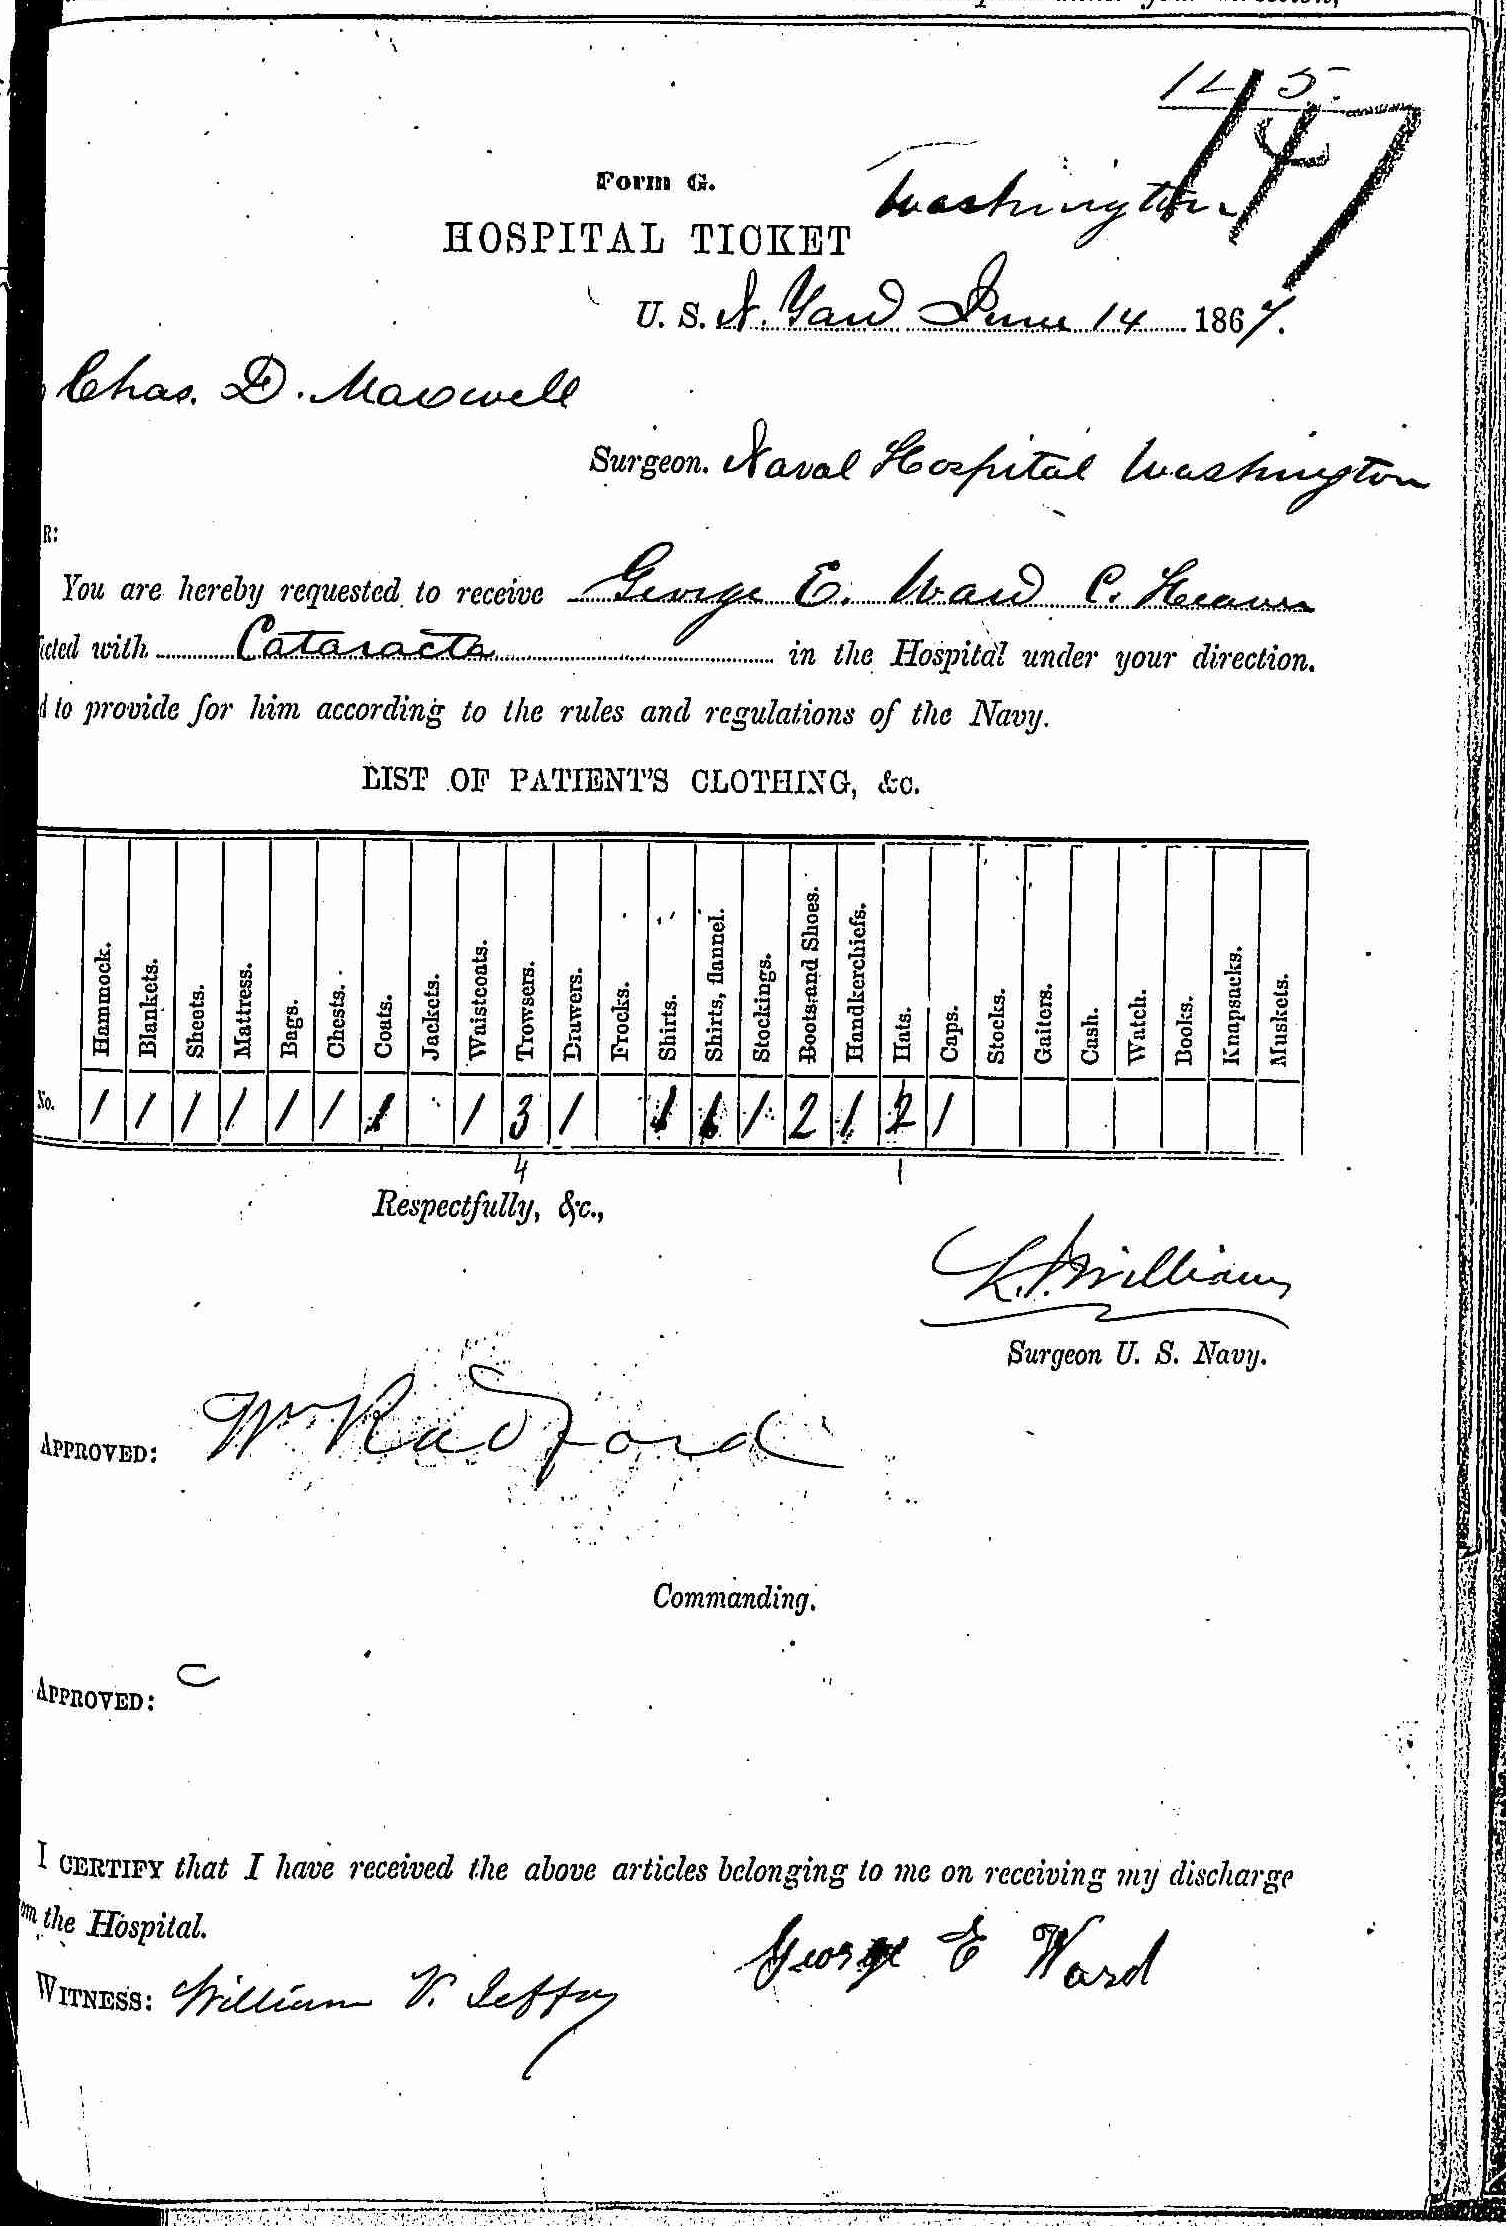 125
147
Form G.
HOSPITAL TICKET
Washington
U. S. N. Yard June 14 1867.
Chas. D. Maxwell
Surgeon. Naval Hospital Washington
R:
You are hereby requested to receive George E. Ward C. Heaver
icted with Cataracta in the Hospital under your direction.
d to provide for him according to the rules and regulations of the Navy.
LIST OF PATIENT'S CLOTHING, &c.
Hammock. Blankets. Sheets. Mattress. Bags. Chests. Coats. Jackets. Waistcoats. Trowsers. Drawers. Frocks. Shirts. Shirts, flannel. Stockings. Boots and Shoes. Handkerchiefs. Hats. Caps. Stocks. Gaiters. Cash. Watch. Books. Knapsacks. Muskets.
No. 1 1 1 1 1 1 1 1 3 1 1 1 1 2 1 2 1
4 1
Respectfully, &c.,
Williams
Surgeon U. S. Navy.
APPROVED: Wm Radford
Commanding.
APPROVED:
I CERTIFY that I have received the above articles belonging to me on receiving my discharge
om the Hospital.
George E Ward
WITNESS: William V. Jeffry